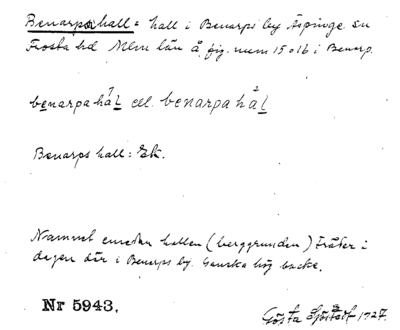 Benarps hall = hall i Benarps by Äspinge sn
Frosta hd Mlm län å fig. num 15 o 16 i Benarp.
benarpahål el. benarpahål
Benarps hall: Ek.
Namnet emedan hallen (berggrunden) träder i
dagen där i Benarps by. Ganska hög backe.
Nr 5943.
Gösta Sjöstedt 1927.